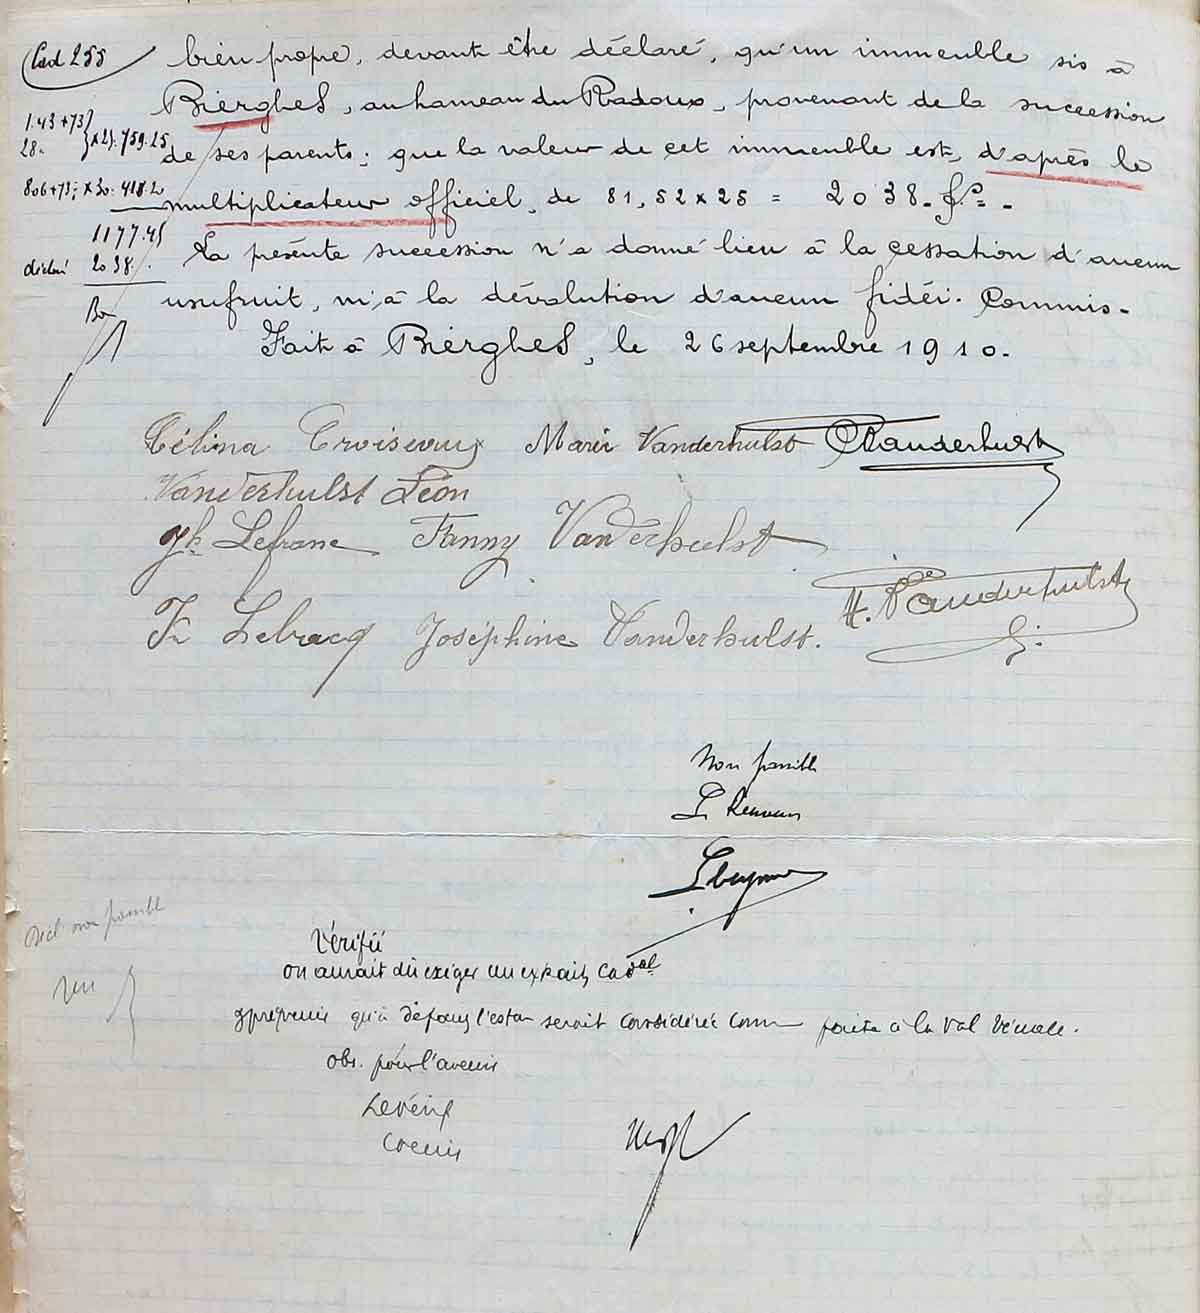 Cad 255
bien propre, devant être déclaré, qu'un immeuble sis à
Bierghes, au hameau du Radoux, provenant de la succession
de ses parents; que la valeur de cet immeuble est, d'après le
multiplicateur officiel, de 81,52 x 25 = 2038. f.cs =.
La présente succession n'a donné lieu à la cessation d'aucun
usufruit, ni à la dévolution d'aucun fidéi-commis.
Fait à Bierghes, le 26 septembre 1910.
1.43+73
28.
x 25. 759.25
806+73; x 20. 418.20
1177.45
déclaré 2038.
Bon
Célina Croiseaux Marie Vanderhulst Vanderhulst
Vanderhulst Léon
Jh Lefranc Fanny Vanderhulst
Fx Lebacq Joséphine Vanderhulst. H. Vanderhulst
Non passible
Le Receveur
Décl non passible
Vu
Vérifié
on aurait dû exiger un extrait cadal
qu'à défaut l'eston serait considérée comme faite à la val vénale.
obs. pour l'avenir
Le vérif